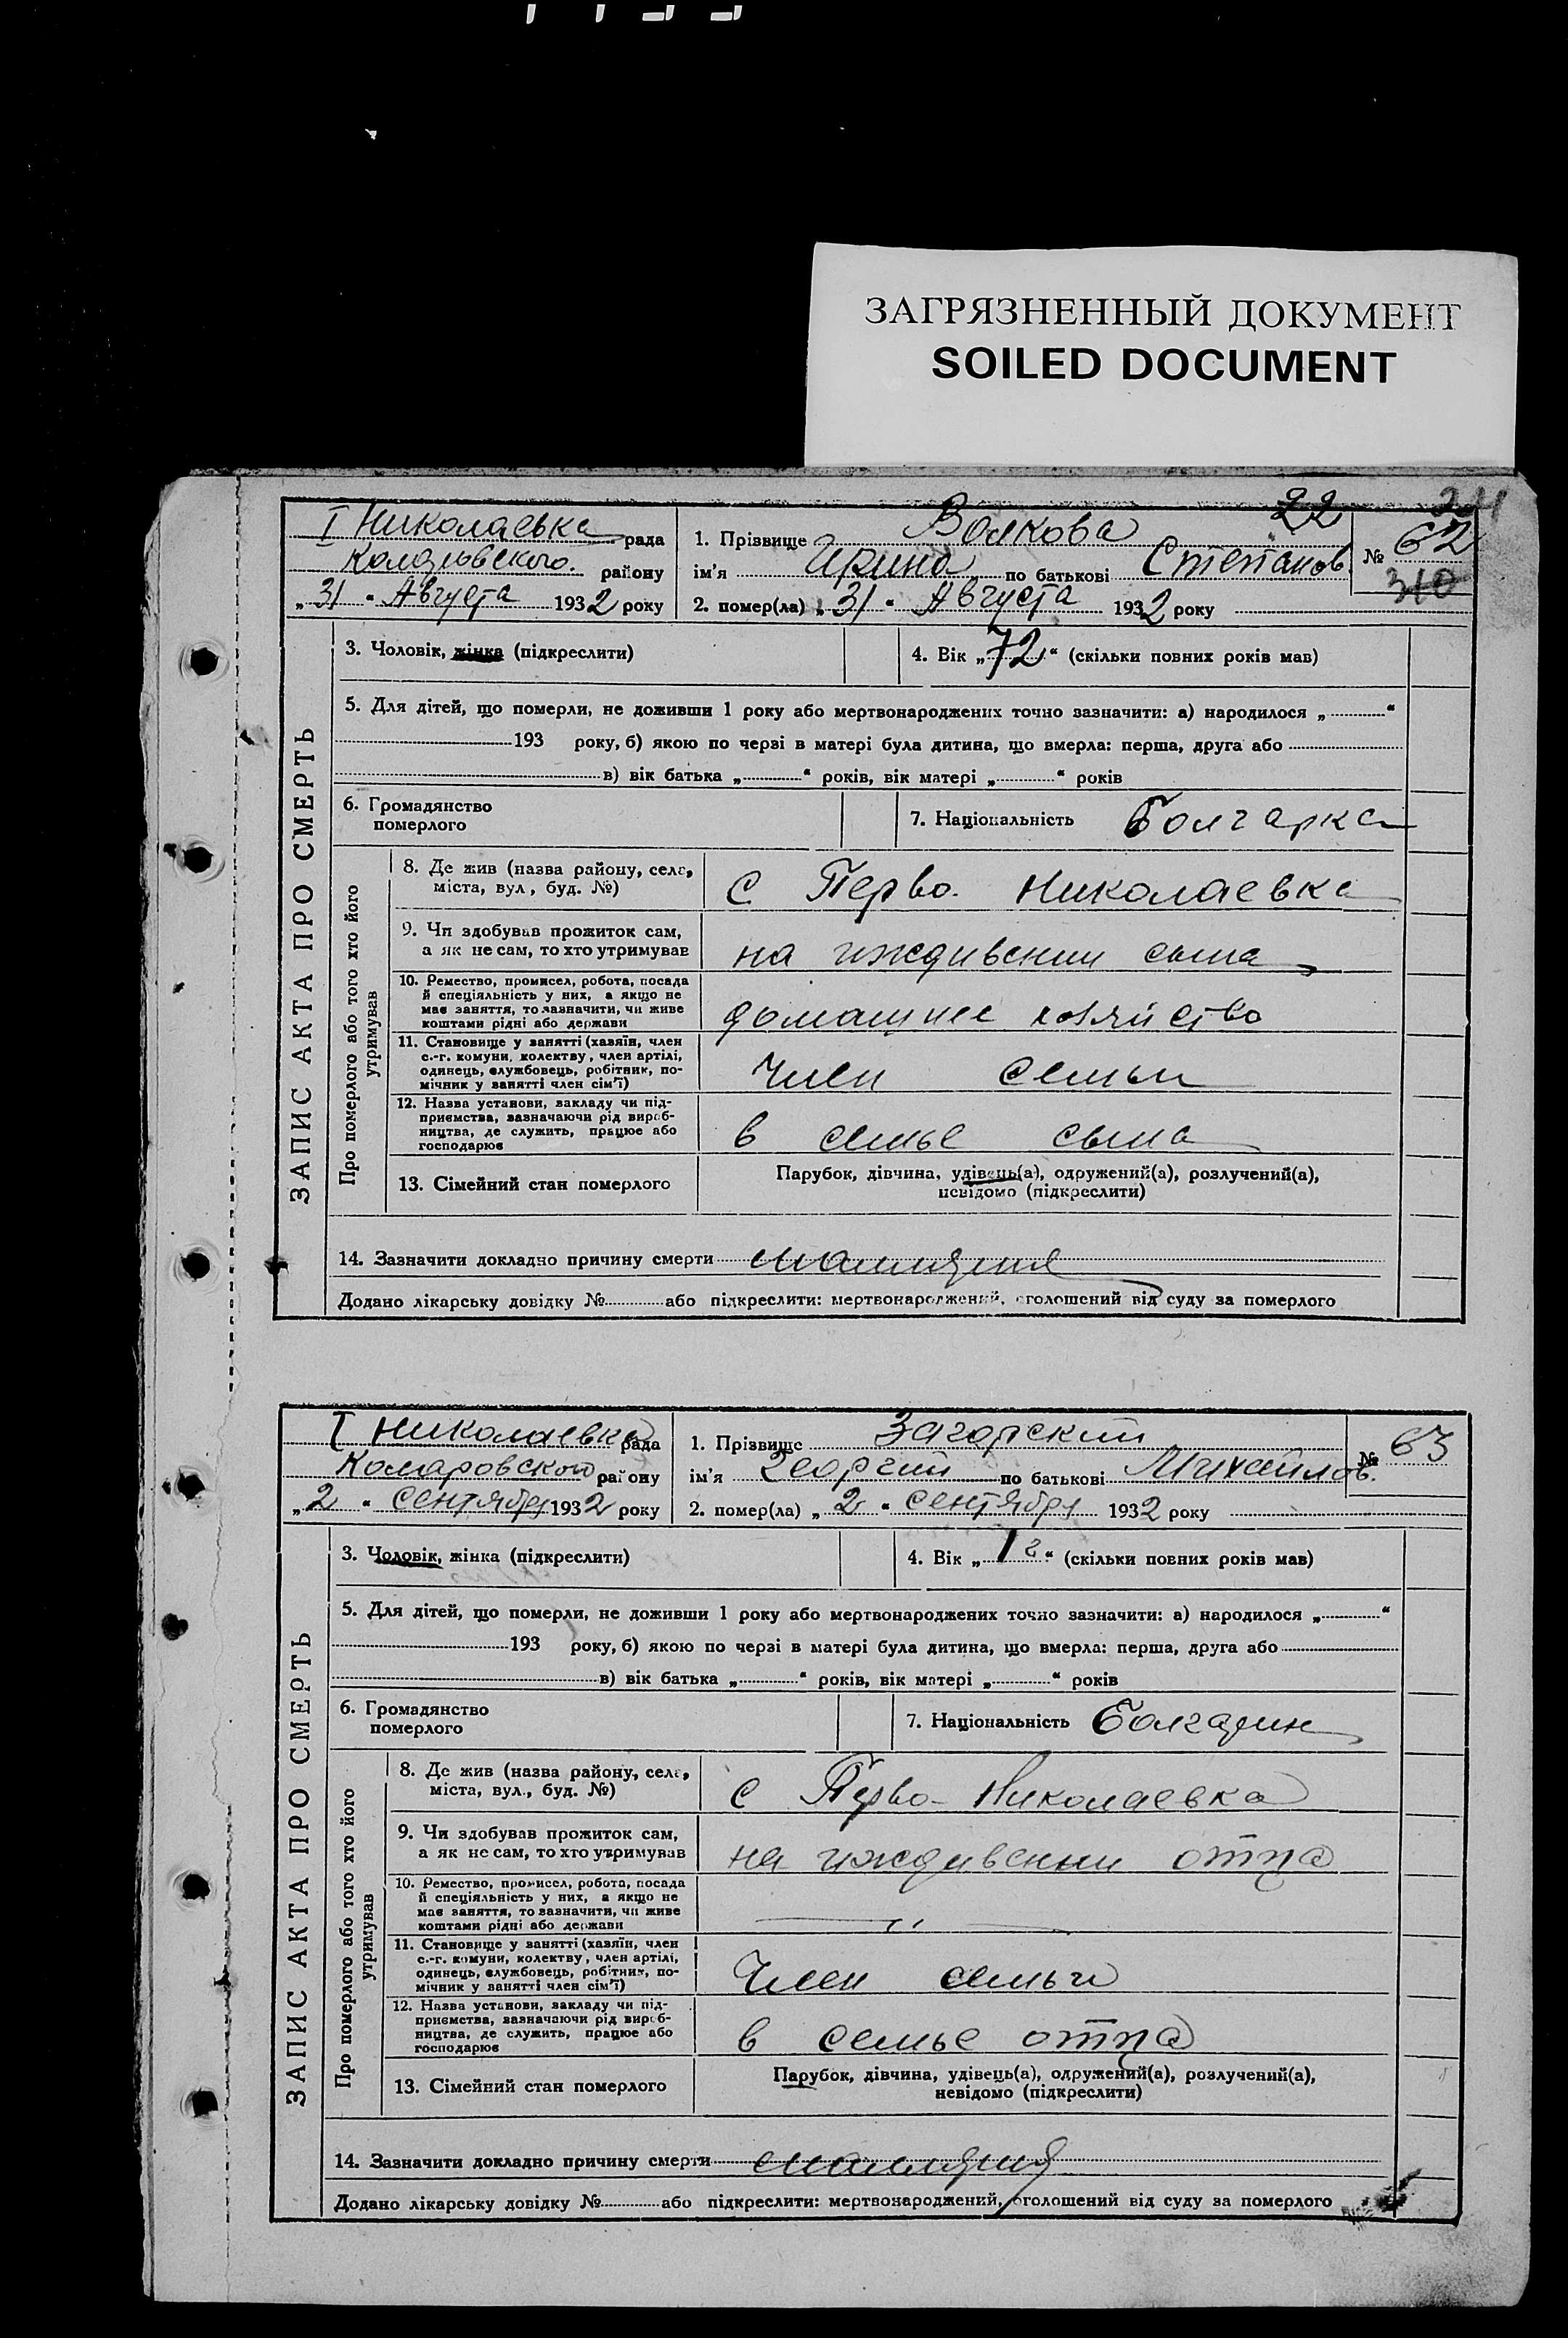 ЗАГРЯЗНЕННЫЙ ДОКУМЕНТ
SOILED DOCUMENT
22
ЗАПИС АКТА ПРО СМЕРТЬ
I Николаевка рада
района району
„31“ Августа 1932 року
1. Прізвище Волкова
ім’я Ирина по батькові Степанов.
2. помер(ла) „31“ Августа 1932 року
№ 62
310
3. Чоловік, жінка (підкреслити)
4. Вік „72“ (скільки повних років мав)
5. Для дітей, що померли, не доживши 1 року або мертвонароджених точно зазначити: а) народилося „ “
193 року, б) якою по черзі в матері була дитина, що вмерла: перша, друга або
в) вік батька „ “ років, вік матері „ “ років
6. Громадянство
померлого
7. Національність Болгарка
Про померлого або того хто його
утримував
8. Де жив (назва району, села,
міста, вул, буд. №)
с Перво. Николаевка
9. Чи здобував прожиток сам,
а як не сам, то хто утримував
на иждивении сына
10. Ремество, промисел, робота, посада
й спеціяльність у них, а якщо не
має заняття, то зазначити, чи живе
коштами рідні або держави
домашнее хозяйство
11. Становище у занятті (хазяїн, член
с.-г. комуни, колективу, член артілі,
одинець, службовець, робітник, по-
мічник у занятті член сім’ї)
Член семьи
12. Назва установи, закладу чи під-
приємства, зазначаючи рід вироб-
ництва, де служить, працює або
господарює
в семье сына
13. Сімейний стан померлого
Парубок, дівчина, удівець(а), одружений(а), розлучений(а),
невідомо (підкреслити)
14. Зазначити докладно причину смерти малярия
Додано лікарську довідку № або підкреслити: мертвонароджений, оголошений від суду за померлого
ЗАПИС АКТА ПРО СМЕРТЬ
I Николаевка рада
Комаровского району
„2“ сентября 1932 року
1. Прізвище Загорский
ім’я Георгий по батькові Михайлов.
2. помер(ла) „2“ сентября 1932 року
№ 63
3. Чоловік, жінка (підкреслити)
4. Вік „1 г“ (скільки повних років мав)
5. Для дітей, що померли, не доживши 1 року або мертвонароджених точно зазначити: а) народилося „ “
193 року, б) якою по черзі в матері була дитина, що вмерла: перша, друга або
в) вік батька „ “ років, вік матері „ “ років
6. Громадянство
померлого
7. Національність Болгарин
Про померлого або того хто його
утримував
8. Де жив (назва району, села,
міста, вул., буд. №)
с Перво-Николаевка
9. Чи здобував прожиток сам,
а як не сам, то хто утримував
на иждивении отца
10. Ремество, промисел, робота, посада
й спеціяльність у них, а якщо не
має заняття, то зазначити, чи живе
коштами рідні або держави
— " —
11. Становище у занятті (хазяїн, член
с.-г. комуни, колективу, член артілі,
одинець, службовець, робітник, по-
мічник у занятті член сім’ї)
Член семьи
12. Назва установи, закладу чи під-
приємства, зазначаючи рід вироб-
ництва, де служить, працює або
господарює
в семье отца
13. Сімейний стан померлого
Парубок, дівчина, удівець(а), одружений(а), розлучений(а),
невідомо (підкреслити)
14. Зазначити докладно причину смерти малярия
Додано лікарську довідку № або підкреслити: мертвонароджений, оголошений від суду за померлого